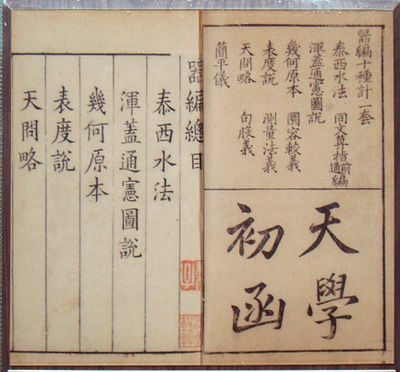 噐編十種計一套
泰西水法 同文算指前通編
渾蓋通憲圖說
幾何原本 圜容較義
表度說 測量法義
天問略 句股義
簡平儀
天學
初函
噐編總目
泰西水法
渾蓋通憲圖說
幾何原本
表度說
天問略